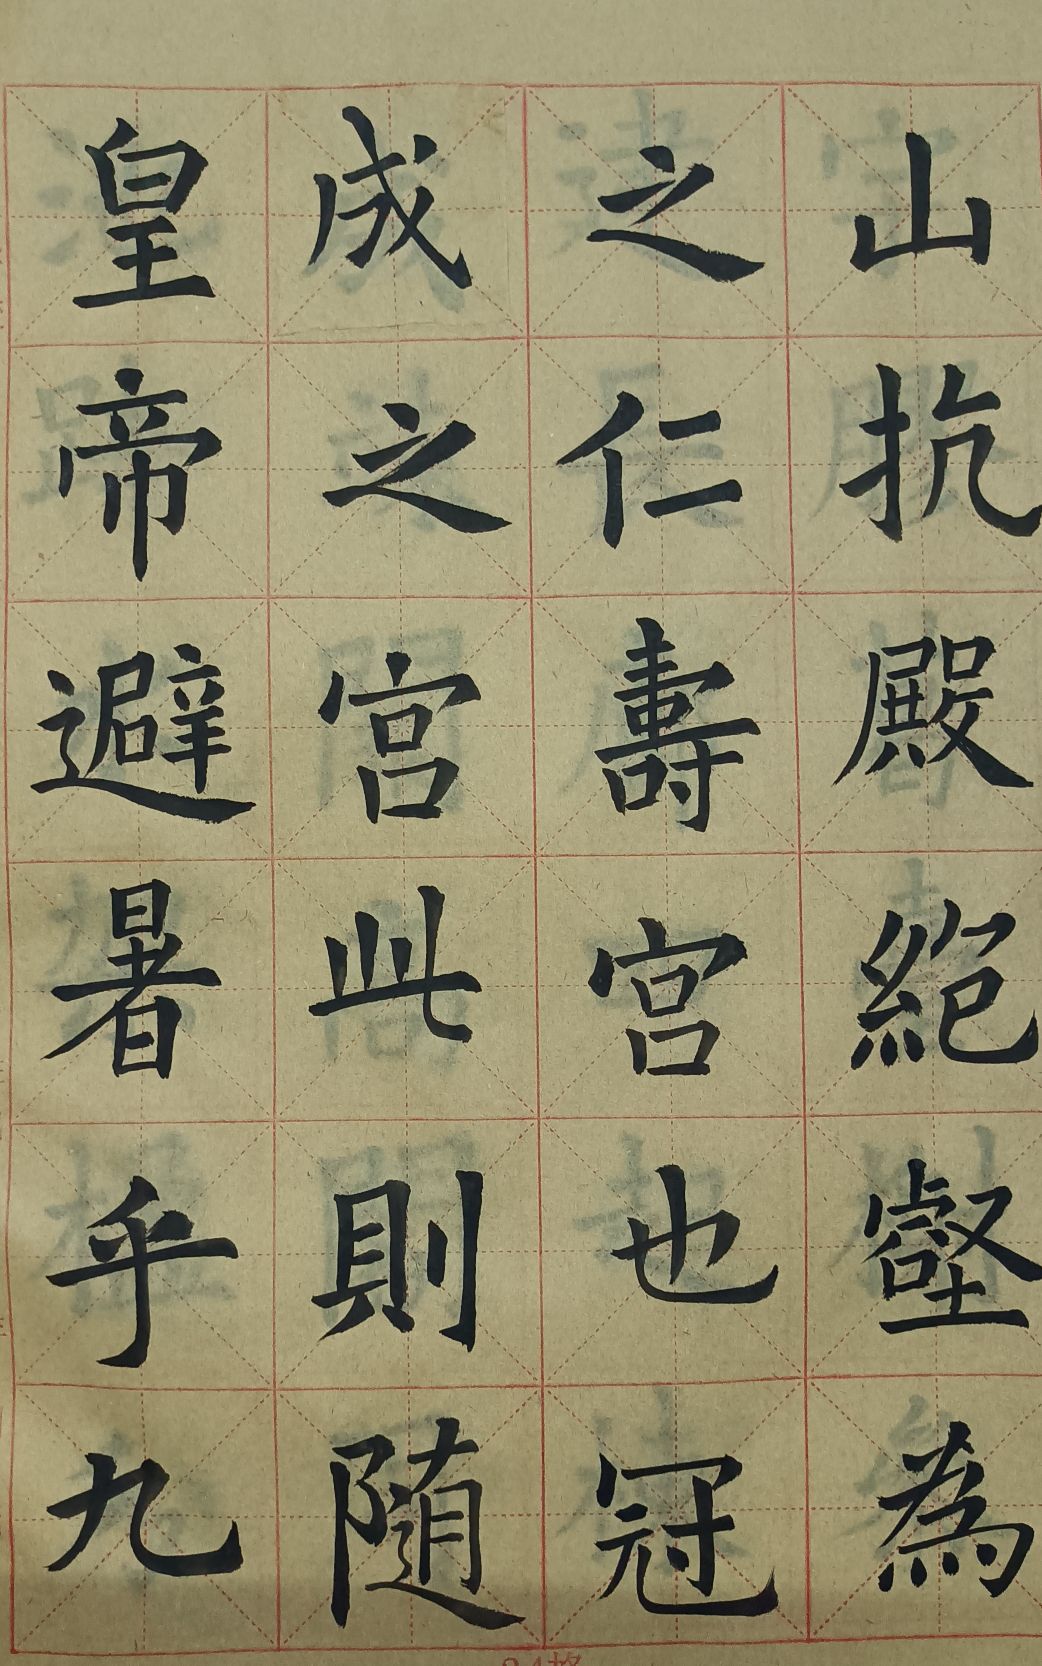 皇帝避暑乎九
成之宫此則随
之仁壽宫也冠
山抗殿絶壑為